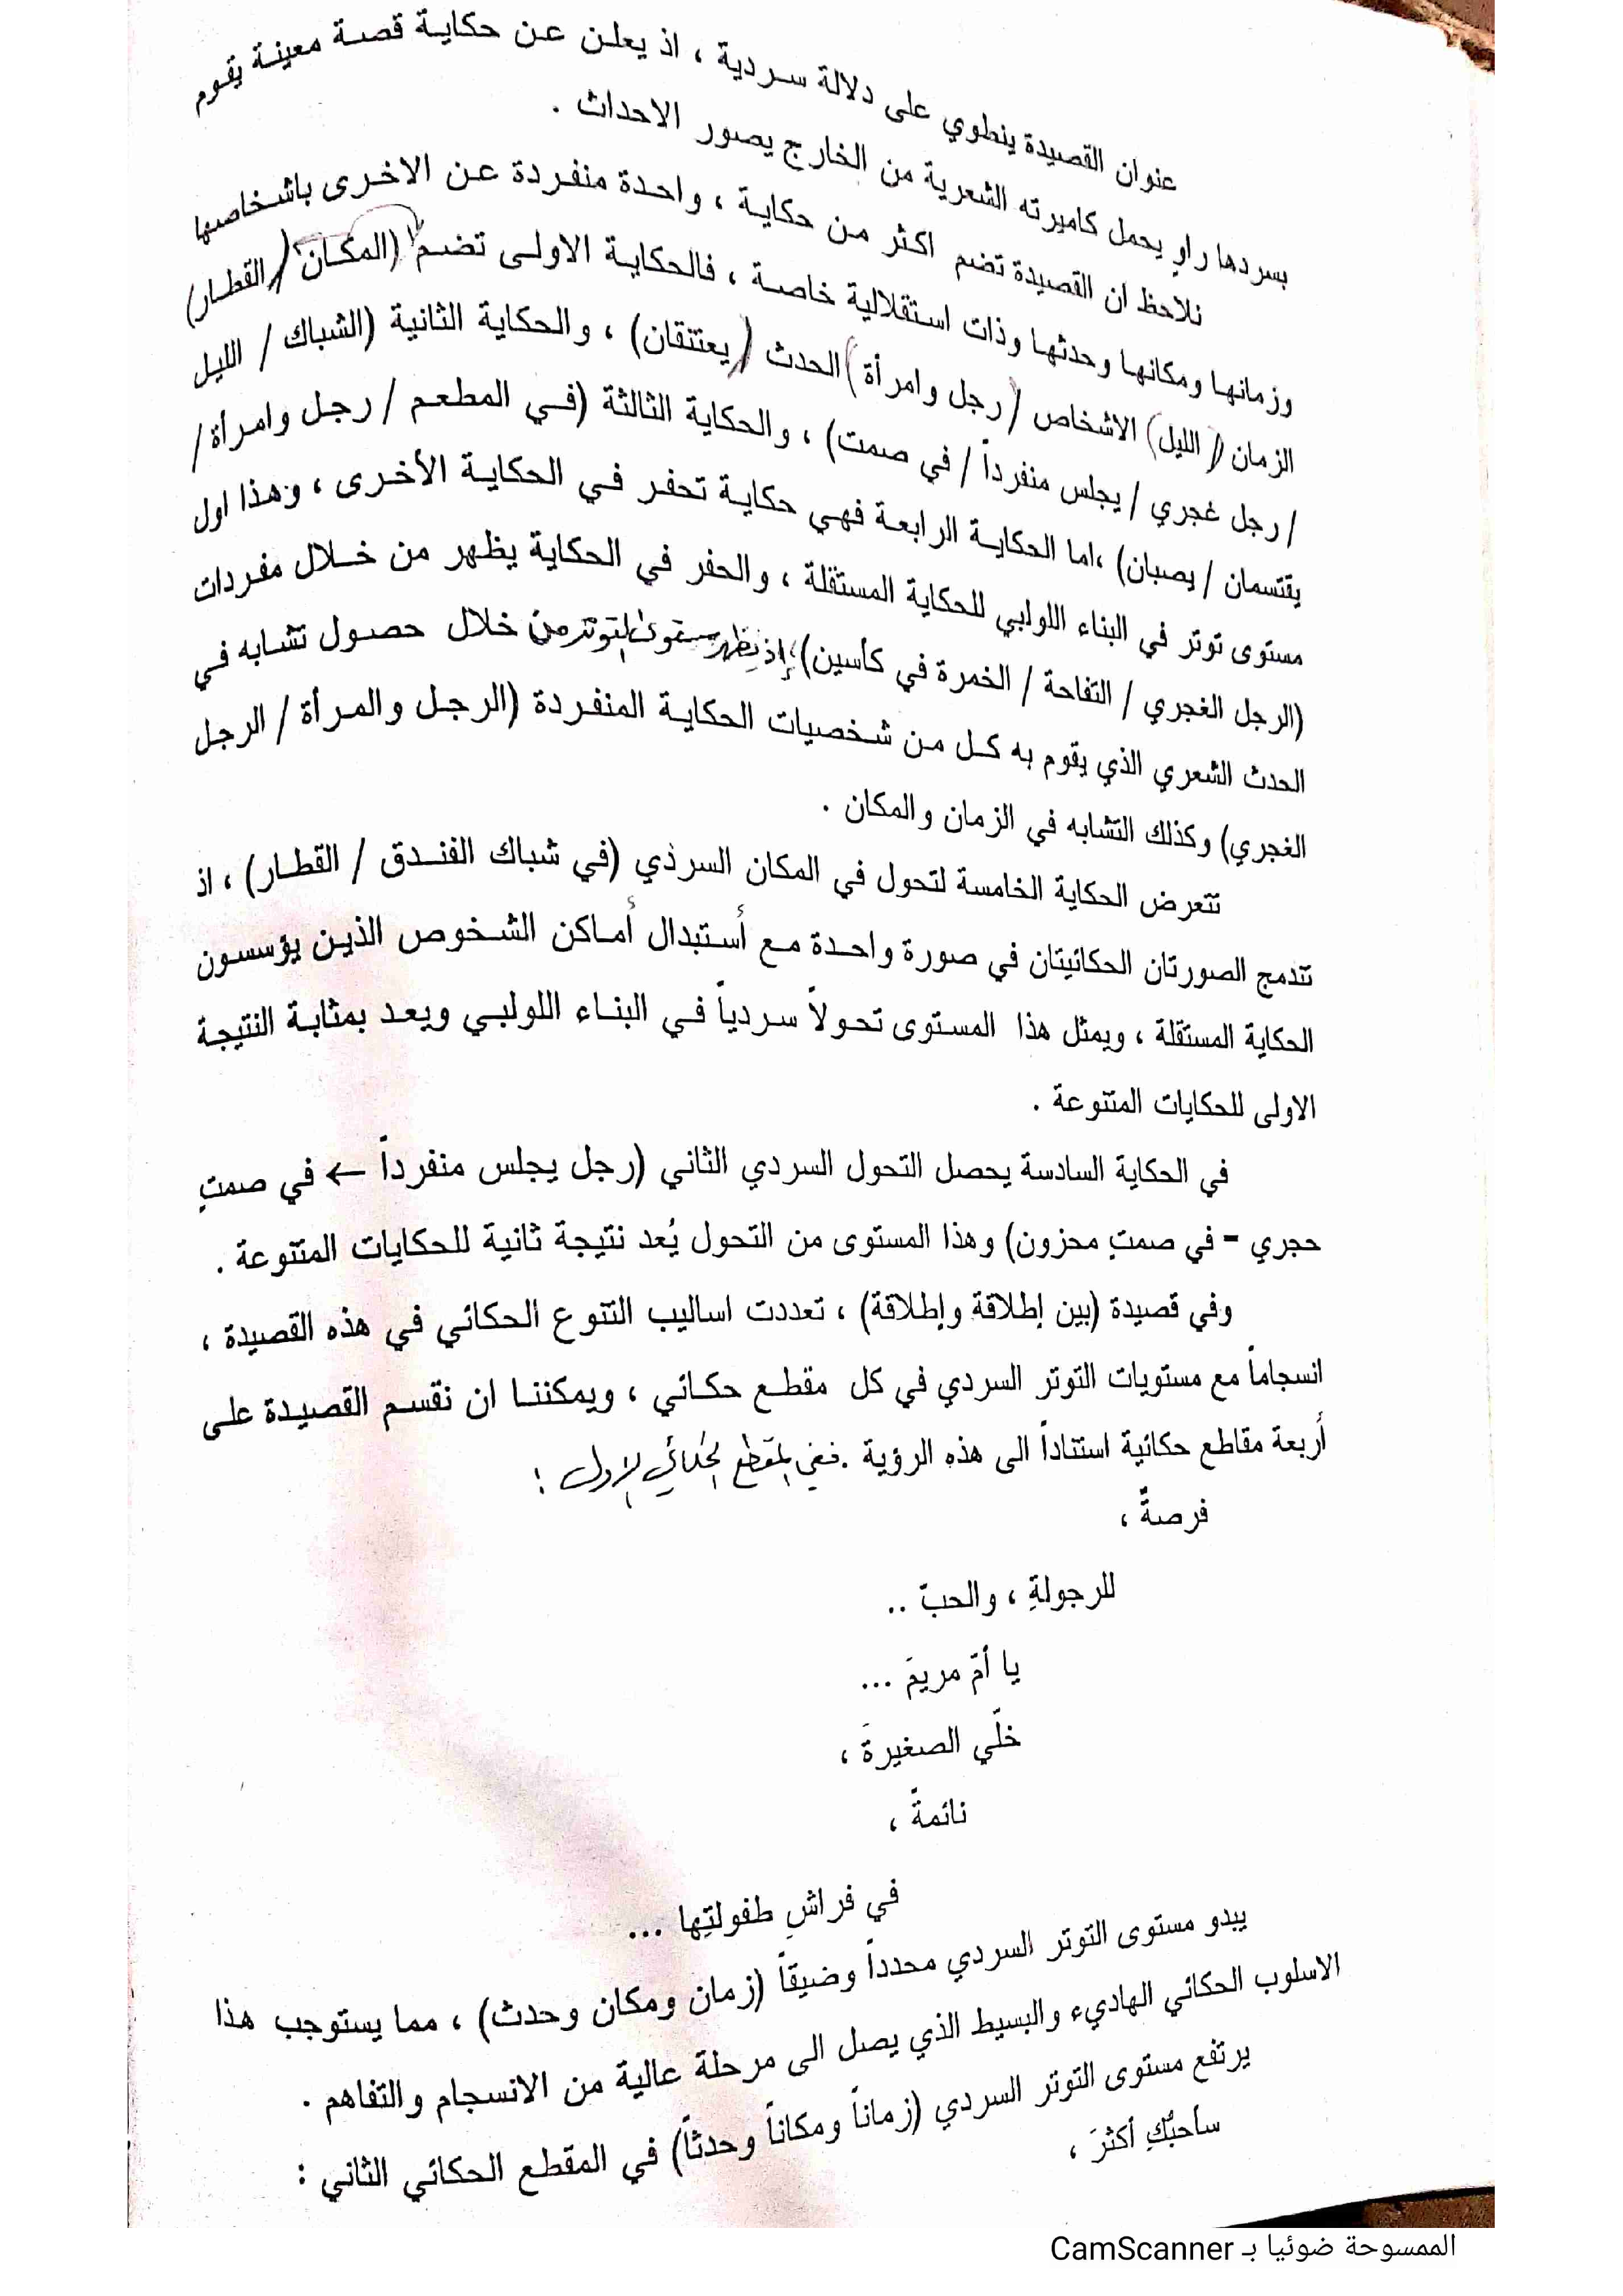 عنوان القصيدة ينطوي على دلالة سردية ، اذ يعلن عن حكاية قصة معينة يقوم
بسردها راوٍ يحمل كاميرته الشعرية من الخارج يصور الاحداث .
نلاحظ ان القصيدة تضم اكثر من حكاية ، واحدة منفردة عن الاخرى باشخاصها
وزمانها ومكانها وحدثها وذات استقلالية خاصة ، فالحكاية الاولى تضم (المكان / القطار)
الزمان / الليل) الاشخاص (رجل وامرأة) الحدث (يعتنقان) ، والحكاية الثانية (الشباك / الليل
/ رجل غجري / يجلس منفرداً / في صمت) ، والحكاية الثالثة (في المطعم / رجل وامرأة /
يقتسمان / يصبان) ،اما الحكاية الرابعة فهي حكاية تحفر في الحكاية الأخرى ، وهذا اول
مستوى توتر في البناء اللولبي للحكاية المستقلة ، والحفر في الحكاية يظهر من خلال مفردات
(الرجل الغجري / التفاحة / الخمرة في كأسين) ، إذ يظهر مستوى التوتر من خلال حصول تشابه في
الحدث الشعري الذي يقوم به كل من شخصيات الحكاية المنفردة (الرجل والمرأة / الرجل
الغجري) وكذلك التشابه في الزمان والمكان .
تتعرض الحكاية الخامسة لتحول في المكان السردي (في شباك الفندق / القطار) ، اذ
تندمج الصورتان الحكائيتان في صورة واحدة مع أستبدال أماكن الشخوص الذين يؤسسون
الحكاية المستقلة ، ويمثل هذا المستوى تحولاً سردياً في البناء اللولبي ويعد بمثابة النتيجة
الاولى للحكايات المتنوعة .
في الحكاية السادسة يحصل التحول السردي الثاني (رجل يجلس منفرداً ← في صمتٍ
حجري - في صمتٍ محزون) وهذا المستوى من التحول يُعد نتيجة ثانية للحكايات المتنوعة .
وفي قصيدة (بين إطلاقة وإطلاقة) ، تعددت اساليب التنوع الحكائي في هذه القصيدة ،
انسجاماً مع مستويات التوتر السردي في كل مقطع حكائي ، ويمكننا ان نقسم القصيدة على
أربعة مقاطع حكائية استناداً الى هذه الرؤية . ففي المقطع الحكائي الاول :
فرصةٌ ،
للرجولةِ ، والحبّ ..
يا أمّ مريمَ ...
خلّي الصغيرةَ ،
نائمةً ،
في فراشِ طفولتِها ...
يبدو مستوى التوتر السردي محدداً وضيقاً (زمان ومكان وحدث) ، مما يستوجب هذا
الاسلوب الحكائي الهاديء والبسيط الذي يصل الى مرحلة عالية من الانسجام والتفاهم .
يرتفع مستوى التوتر السردي (زماناً ومكاناً وحدثاً) في المقطع الحكائي الثاني :
سأحبُّكِ أكثرَ ،
الممسوحة ضوئيا بـ CamScanner